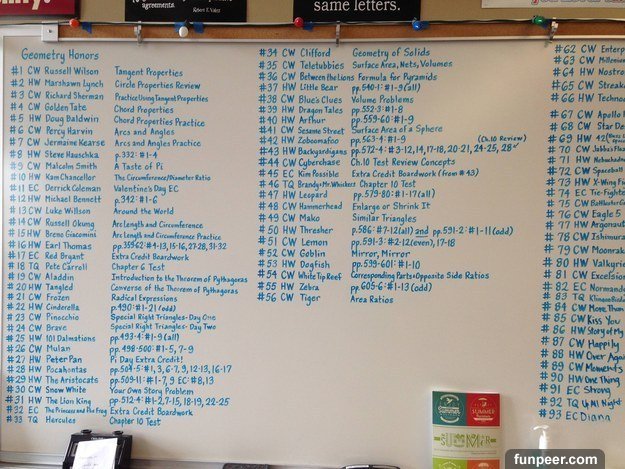 agreements.
Robert F. Valett
some of the
same letters.
Geometry Honors
#1 CW Russell Wilson Tangent Properties
#2 HW Marshawn Lynch Circle Properties Review
#3 CW Richard Sherman Practice Using Tangent Properties
#4 CW Golden Tate Chord Properties
#5 HW Doug Baldwin Chord Properties Practice
#6 CW Percy Harvin Arcs and Angles
#7 CW Jermaine Kearse Arcs and Angles Practice
#8 HW Steve Hauschka p.332: #1-4
#9 CW Malcolm Smith A Taste of Pi
#10 HW Kam Chancellor The Circumference/Diameter Ratio
#11 EC Derrick Coleman Valentine's Day EC
#12 HW Michael Bennett p.342: #1-6
#13 CW Luke Willson Around the World
#14 CW Russell Okung Arc Length and Circumference
#15 HW Breno Giacomini Arc Length and Circumference Practice
#16 HW Earl Thomas pp.359-62: #1-4, 13-15, 16-27, 28, 31-32
#17 EC Red Bryant Extra Credit Boardwork
#18 TQ Pete Carroll Chapter 6 Test
#19 CW Aladdin Introduction to the Theorem of Pythagoras
#20 HW Tangled Converse of the Theorem of Pythagoras
#21 CW Frozen Radical Expressions
#22 HW Cinderella p.490: #1-21 (odd)
#23 CW Pinocchio Special Right Triangles-Day One
#24 CW Brave Special Right Triangles-Day Two
#25 HW 101 Dalmations pp.493-4: #1-9 (all)
#26 CW Mulan pp.498-500: #1-5, 7-9
#27 HW Peter Pan Pi Day Extra Credit!
#28 HW Pocahontas pp.504-5: #1, 3, 6-7, 9, 12-13, 16-17
#29 HW The Aristocats pp.509-11: #1-7, 9 EC: #8, 13
#30 CW Snow White Your Own Story Problem
#31 HW The Lion King pp.512-4: #1-2, 7-15, 18-19, 22-25
#32 EC The Princess and the Frog Extra Credit Boardwork
#33 TQ Hercules Chapter 10 Test
#34 CW Clifford Geometry of Solids
#35 CW Teletubbies Surface Area, Nets, Volumes
#36 CW Between the Lions Formula for Pyramids
#37 HW Little Bear pp.540-1: #1-9 (all)
#38 CW Blue's Clues Volume Problems
#39 HW Dragon Tales pp.552-3: #1-8
#40 HW Arthur pp.559-60: #1-9
#41 CW Sesame Street Surface Area of a Sphere
#42 HW Zoboomafoo pp.563-4: #1-9
(Ch.10 Review)
#43 HW Backyardigans pp.572-4: #3-12, 14, 17, 18, 20-21, 24-25, 28
#44 CW Cyberchase Ch.10 Test Review Concepts
#45 EC Kim Possible Extra Credit (from #43)
#46 TQ Brandy+Mr. Whisker Chapter 10 Test
#47 HW Leopard pp.579-80: #1-17 (all)
#48 CW Hammerhead Enlarge or Shrink It
#49 CW Mako Similar Triangles
#50 HW Thresher p.586: #7-12 (all) and pp.591-2: #1-11 (odd)
#51 CW Lemon p.591-3: #2-12 (even), 17-18
#52 CW Goblin Mirror, Mirror
#53 HW Dogfish pp.599-601: #1-10
#54 CW White Tip Reef Corresponding Parts + Opposite Side Ratios
#55 HW Zebra p.605-6: #1-13 (odd)
#56 CW Tiger Area Ratios
#62 CW Enterp
#63 CW Millenni
#64 HW Nostro
#65 CW Streak
#66 HW Techno
#67 CW Apollo
#68 CW Star De
#69 HW 42
#70 CW Jabba's Fla
#71 HW Nebuchadn
#72 CW Spaceball
#73 HW X-Wing Fi
#74 EC Tie-Fighte
#75 CW Battlestar G
#76 CW Eagle 5
#77 HW Argonaut
#78 CW Ishimura
#79 CW Moonrak
#80 HW Valkyri
#81 CW Excelsior
#82 EC Normandy
#83 TQ Klingon Birdo
#84 CW More Than
#85 CW Kiss You
#86 HW Story of My
#87 CW Happily
#88 HW Over Again
#89 CW Moments
#90 HW One Thing
#91 EC Strong
#92 TQ Up All Night
#93 EC Diana
SUMMER
funpeer.com